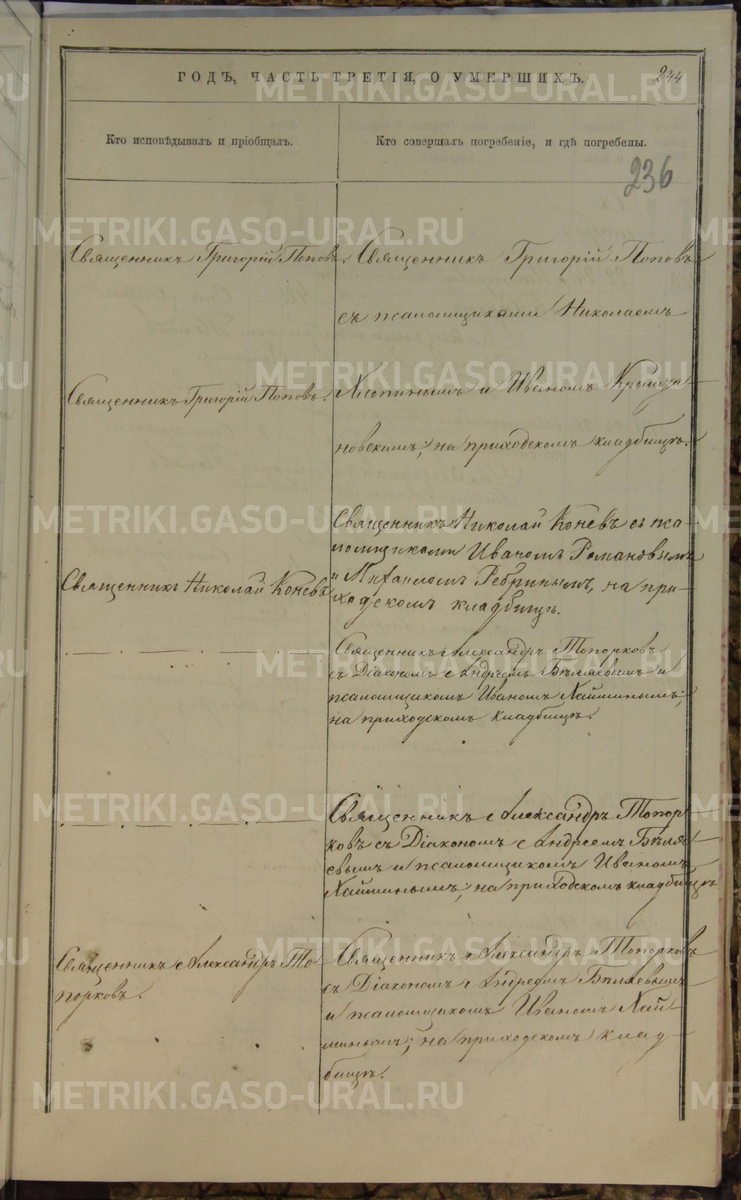 ГОДЪ, ЧАСТЬ ТРЕТІЯ, О УМЕРШИХЪ.
244
Кто исповѣдывалъ и пріобщалъ.
Кто совершалъ погребеніе, и гдѣ погребены.
236
METRIKI.GASO-URAL.RU
Священникъ Григорій Поповъ.
Священникъ Григорій Поповъ
съ псаломщиками Николаемъ
Священникъ Григорій Поповъ.
Хлопинымъ и Иваномъ
новскимъ, на приходскомъ кладбищѣ.
Священникъ Николай Коневъ
Священникъ Николай Коневъ съ пса-
ломщиками Иваномъ Романовымъ
и Михаиломъ Ребринымъ, на при-
ходскомъ кладбищѣ.
Священникъ Александръ Топорковъ
съ Діакономъ Андреемъ Бѣляевымъ и
псаломщикомъ Иваномъ Хайминымъ;
на приходскомъ кладбищѣ.
Священникъ Александръ Топор-
ковъ съ Діакономъ Андреемъ Бѣля-
евымъ и псаломщикомъ Иваномъ
Хайминымъ, на приходскомъ кладбищѣ
Священникъ Александръ То-
порковъ.
Священникъ Александръ Топорковъ
съ Діакономъ Андреемъ Бѣляевымъ
и псаломщикомъ Иваномъ Хай-
минымъ; на приходскомъ клад-
бищѣ.